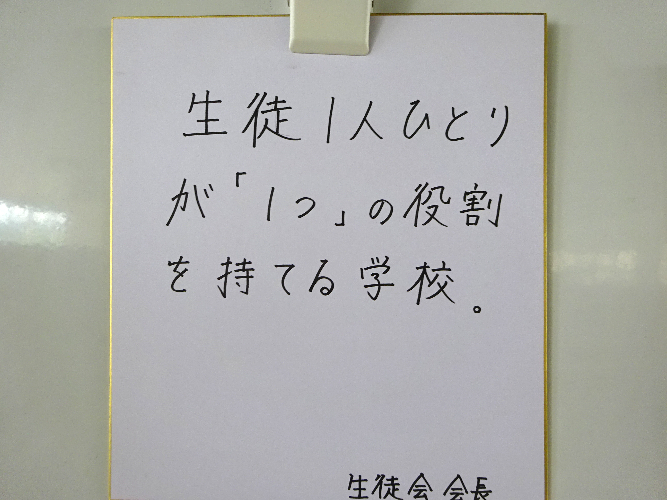 生徒1人ひとり
が「1つ」の役割
を持てる学校。
生徒会 会長